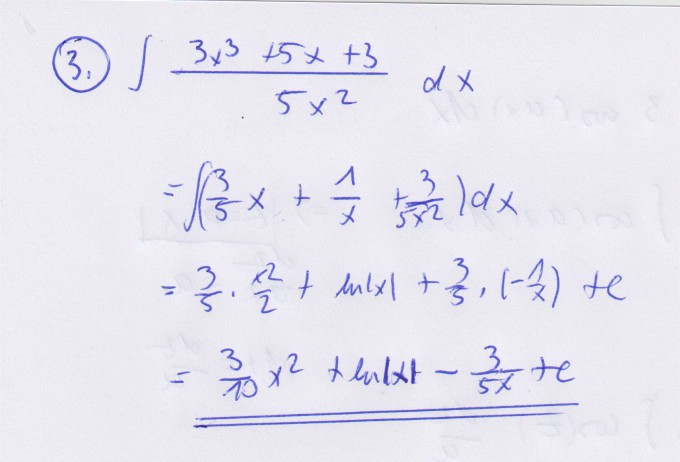 3. ∫ (3x³ +5x +3)/(5x²) dx
= ∫(3/5 x + 1/x + 3/(5x²)) dx
= 3/5 · x²/2 + ln|x| + 3/5 · (-1/x) + c
= 3/10 x² + ln|x| - 3/(5x) + c